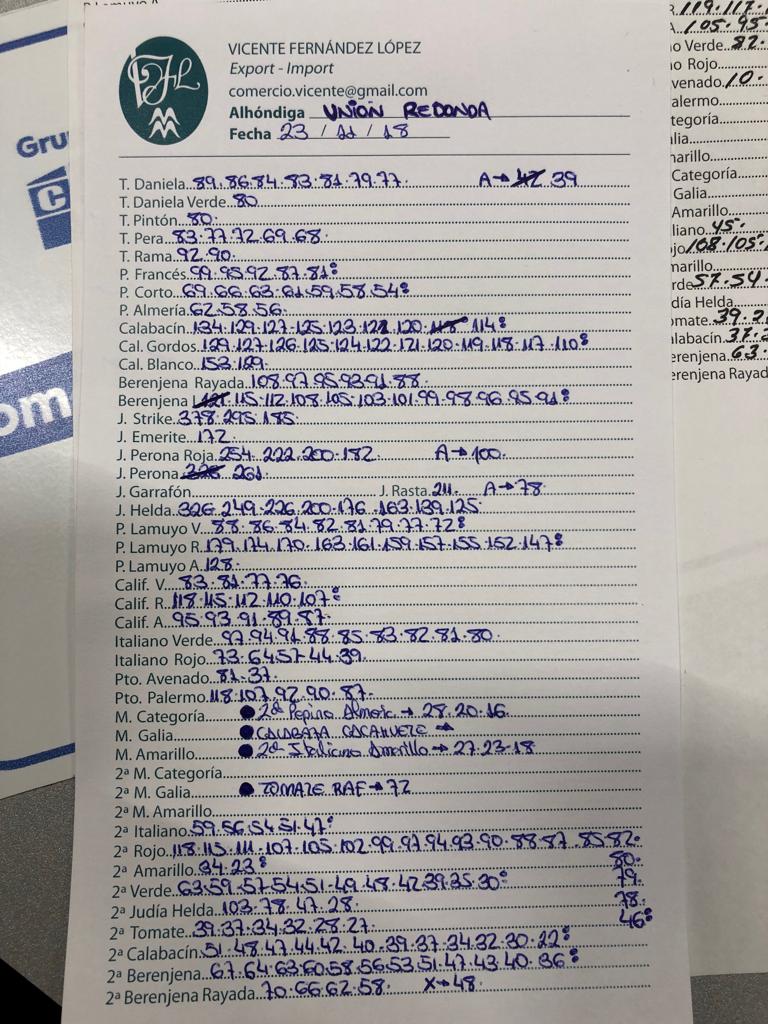 VICENTE FERNÁNDEZ LÓPEZ
Export - Import
comercio.vicente@gmail.com
Alhóndiga UNION REDONDA
Fecha 23 / 11 / 18
T. Daniela 89.86.84.83.81.79.77 A→ 39
T. Daniela Verde 80
T. Pintón 80.
T. Pera 83.77.72.69.68
T. Rama 92.90.
P. Francés 99.95.92.87.81:
P. Corto 69.66.63.61.59.58.54:
P. Almería 62.58.56.
Calabacín 134.129.127.125.123.122.120. 114:
Cal. Gordos 129.127.126.125.124.122.121.120.119.118.117.110:
Cal. Blanco 153.129.
Berenjena Rayada 108.97.95.93.91.88.
Berenjena 115.112.108.105.103.101.99.98.96.95.91:
J. Strike 378.295.185.
J. Emerite 172.
J. Perona Roja 254.222.200.182 A→100.
J. Perona 261.
J. Garrafón J. Rasta 211. A→78
J. Helda 326.249.226.200.176.163.139.125.
P. Lamuyo V. 88.86.84.82.81.79.77.72:
P. Lamuyo R. 179.174.170.163.161.159.157.155.152.147:
P. Lamuyo A. 128.
Calif. V. 83.81.77.76.
Calif. R. 118.115.112.110.107:
Calif. A. 95.93.91.89.87.
Italiano Verde 97.94.91.88.85.83.82.81.80.
Italiano Rojo 73.64.57.44.39.
Pto. Avenado 81.37.
Pto. Palermo 118.107.92.90.87.
M. Categoría ● 2ª Pepino Almería → 28.20.16.
M. Galia ● CALABAZA CACAHUETE →
M. Amarillo ● 2ª Italiano Amarillo → 27.23.18
2ª M. Categoría
2ª M. Galia ● TOMATE RAF → 72
2ª M. Amarillo
2ª Italiano 59.56.54.51.47:
2ª Rojo 118.115.111.107.105.102.99.97.94.93.90.88.87.85.82.
80.
2ª Amarillo 34.23:
79.
2ª Verde 63.59.57.54.51.49.48.42.39.35.30:
78.
2ª Judía Helda 103.78.47.28.
46:
2ª Tomate 39.37.34.32.28.27.
2ª Calabacín 51.48.47.44.42.40.39.37.34.32.30.22:
2ª Berenjena 67.64.63.60.58.56.53.51.47.43.40.36:
2ª Berenjena Rayada 70.66.62.58. X→48.
Gru
C
om
119.117.
105.95.
o Verde 82.
o Rojo
venado 10.
alermo
tegoría
lia
arillo
Categoría
Galia
Amarillo
liano 45.
jo 108.105.
marillo
rde 57.54.
día Helda
omate 39.2
labacín 37.2
erenjena 63.
erenjena Rayad